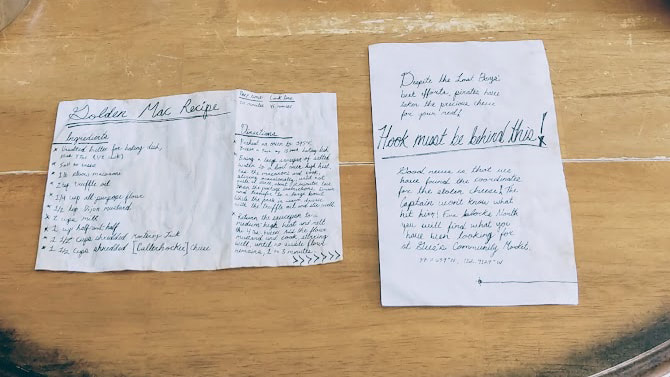 Golden Mac Recipe
Ingredients
* Unsalted butter for baking dish,
* Salt
* 1 lb elbow macaroni
* 2 tsp truffle oil
* 1/4 cup all-purpose flour
* 1 1/2 tsp Dijon mustard
* 2 cups milk
* 1 cup half-and-half
* 2 1/2 cups shredded Monterey Jack
* 2 1/2 cups shredded cheese
Prep time: Cook time:
Directions
* Preheat an oven to 375°F.
* Bring a large amount of salted
water to a boil over high heat.
Add the macaroni and cook,
stirring occasionally, until not
than the package instructions. Drain
and transfer to a large bowl.
While the pasta is warm, drizzle
with the truffle oil and stir well.
* Return the saucepan to
medium high heat and melt
mustard and cook, stirring
well, until no visible flour
remains, 2 to 3 minutes
>>>>>>>>
Despite the Lost Boys'
best efforts, pirates have
taken the precious cheese
for your meal!
Hook must be behind this!
Good news is that we
have found the coordinates
for the stolen cheese! The
Captain won't know what
hit him! Five blocks North
you will find what you
have been looking for
at Community Market.